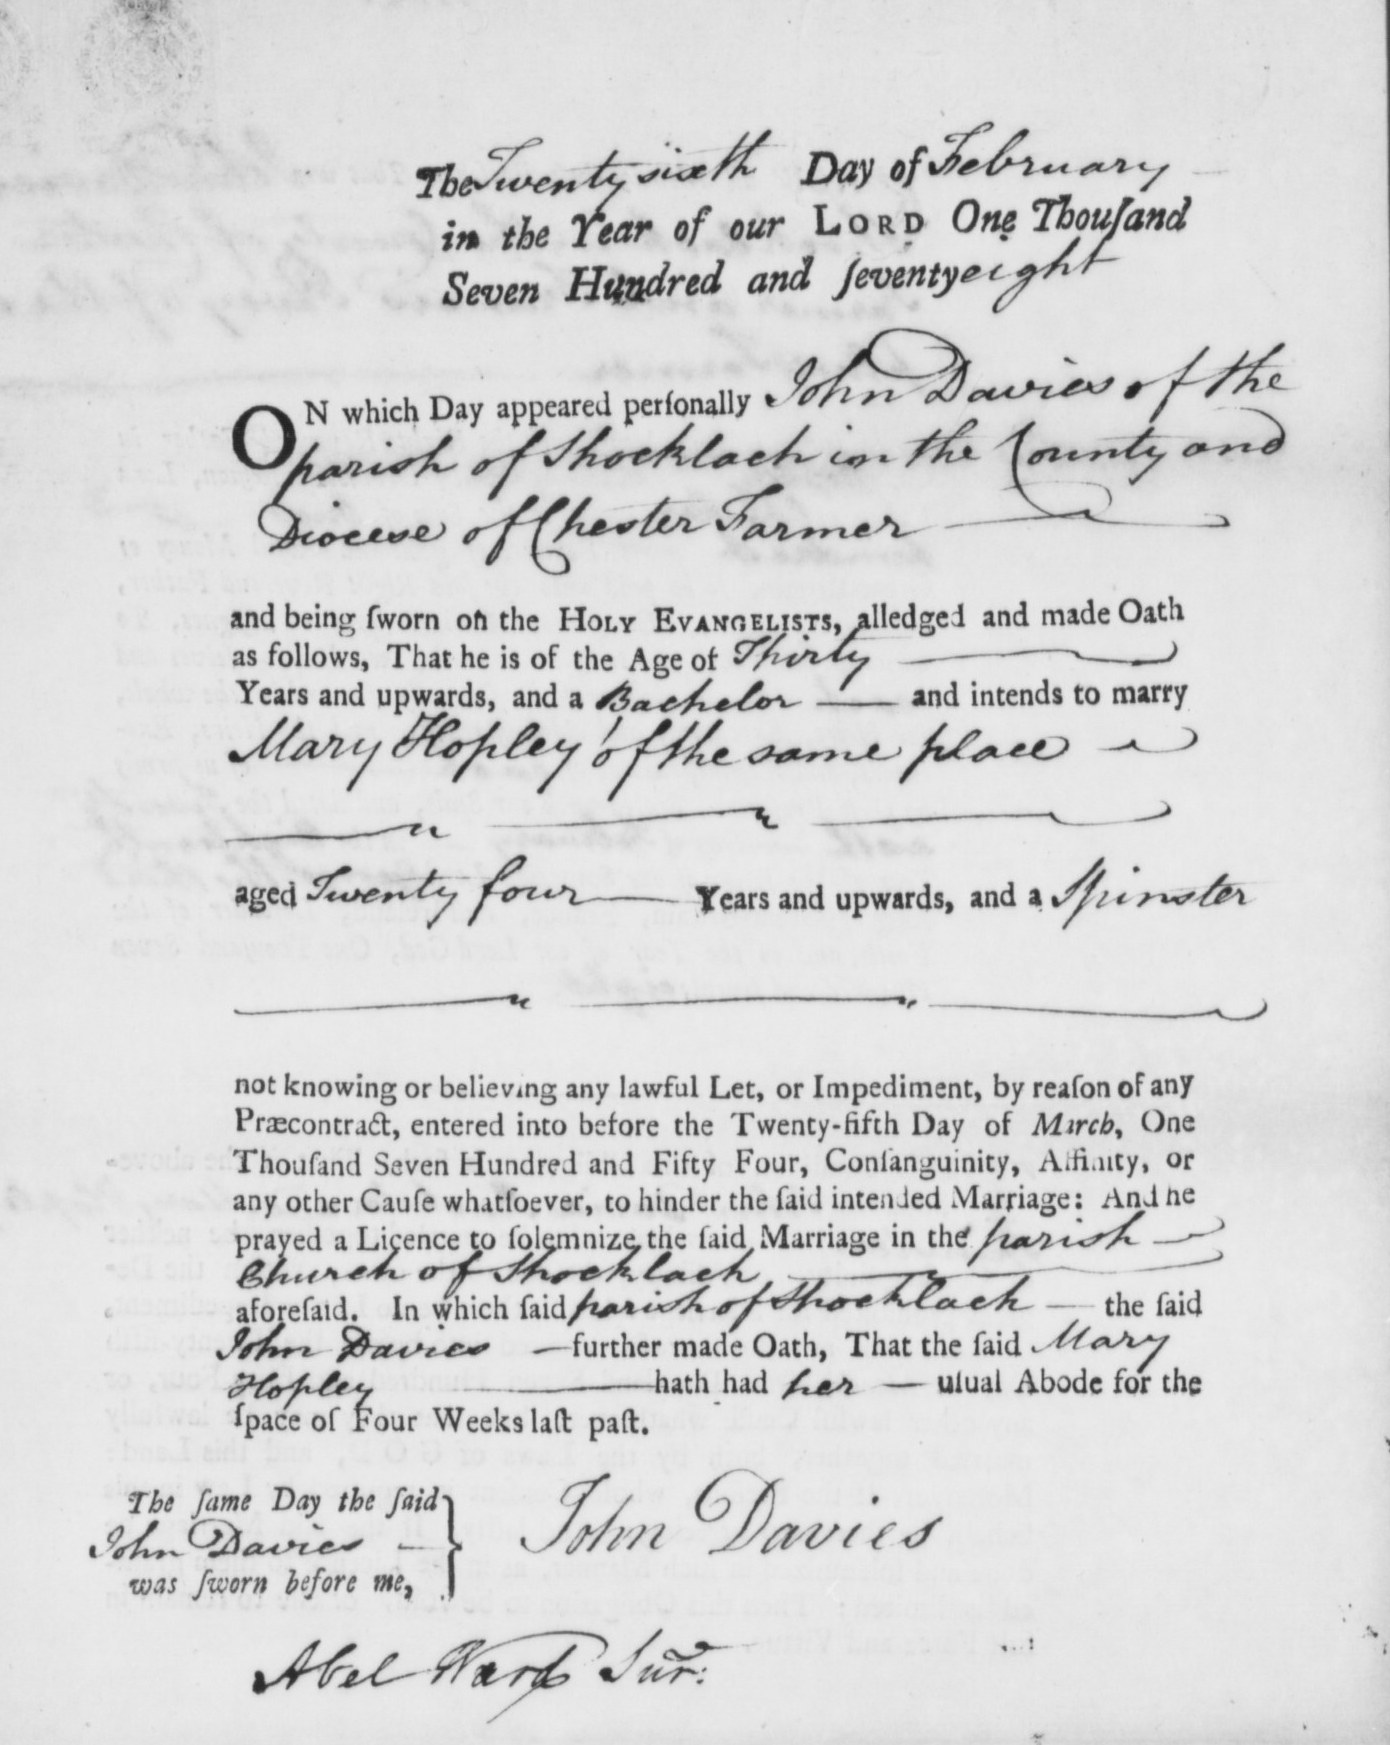 The Twenty sixth Day of February
in the Year of our LORD One Thouſand
Seven Hundred and ſeventy eight
ON which Day appeared perſonally John Davies of the
parish of Shocklach in the County and
Diocese of Chester Farmer
and being ſworn on the HOLY EVANGELISTS, alledged and made Oath
as follows, That he is of the Age of Thirty
Years and upwards, and a Bachelor — and intends to marry
Mary Hopley of the same place
aged Twenty four — Years and upwards, and a Spinster
not knowing or believing any lawful Let, or Impediment, by reaſon of any
Præcontract, entered into before the Twenty-fifth Day of March, One
Thouſand Seven Hundred and Fifty Four, Conſanguinity, Affinity, or
any other Cauſe whatſoever, to hinder the ſaid intended Marriage: And he
prayed a Licence to ſolemnize the ſaid Marriage in the parish —
Church of Shocklach
aforeſaid. In which ſaid parish of Shocklach — the ſaid
John Davies — further made Oath, That the ſaid Mary
Hopley — hath had her — uſual Abode for the
ſpace of Four Weeks laſt paſt.
The ſame Day the ſaid
John Davies —
was ſworn before me,
John Davies
Abel Ward Surr: